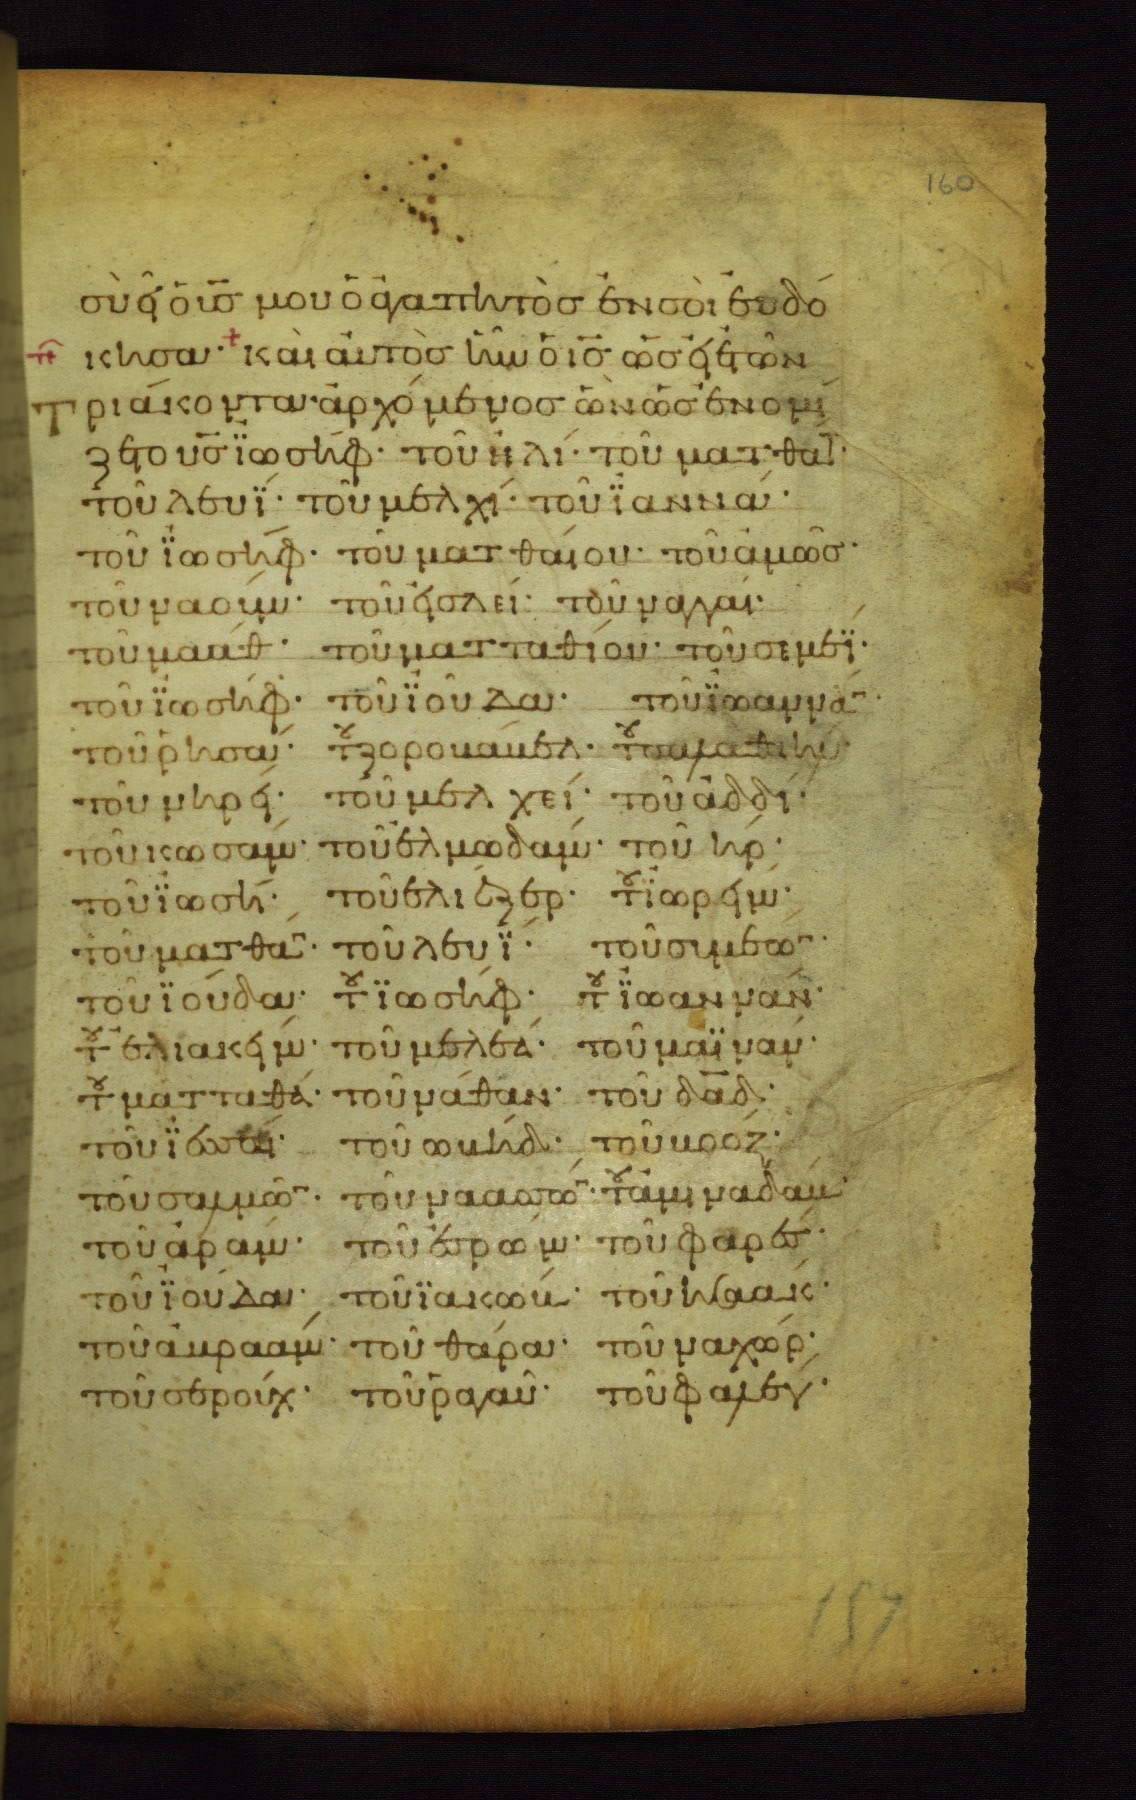 160
σὺ εἶ ὁ υ̅σ̅ μου ὁ ἀγαπητὸσ ἐν σοὶ εὐδό
κησα· καὶ αὐτὸσ ἦν ὁ ι̅σ̅ ὡσεὶ ἐτῶν
τριάκοντα· ἀρχόμενοσ ὢν ὡσ ἐνομί
ζετο υ̅σ̅ ϊωσήφ· τοῦ ἡλί· τοῦ ματθα̅τ·
τοῦ λευϊ· τοῦ μελχί· τοῦ ϊαννά·
τοῦ ϊωσήφ· τοῦ ματθαίου· τοῦ ἀμῶσ·
τοῦ ναούμ· τοῦ ἐσλεί· τοῦ ναγγαί·
τοῦ μαάθ· τοῦ ματταθίου· τοῦ σεμεϊ·
τοῦ ϊωσήφ· τοῦ ϊούδα· τοῦ ϊωαννᾶ·
τοῦ ῥησά· τοῦ ζοροβάβελ· τοῦ σαλαθιήλ·
τοῦ νηρί· τοῦ μελχεί· τοῦ ἀδδί·
τοῦ κωσάμ· τοῦ ἐλμωδάμ· τοῦ ήρ·
τοῦ ϊωσή· τοῦ ελιέζερ· τοῦ ϊωρείμ·
τοῦ ματθα̅τ· τοῦ λευϊ· τοῦ συμεώ̅·
τοῦ ϊούδα· τοῦ ϊωσήφ· τοῦ ϊωαννάν·
τοῦ ἐλιακείμ· τοῦ μελεά· τοῦ μαϊνάν·
τοῦ ματταθά· τοῦ νάθαν· τοῦ δα̅δ·
τοῦ ϊεσσαί· τοῦ ωβήδ· τοῦ βοόζ·
τοῦ σαλμώ̅· τοῦ ναασσώ̅· τοῦ ἀμιναδάμ·
τοῦ ἀράμ· τοῦ ἐσρώμ· τοῦ φαρέσ·
τοῦ ϊούδα· τοῦ ϊακώβ· τοῦ ἰσαάκ·
τοῦ ἀβραάμ· τοῦ θάρα· τοῦ ναχώρ·
τοῦ σερούχ· τοῦ ῥαγαῦ· τοῦ φάλεγ·
157